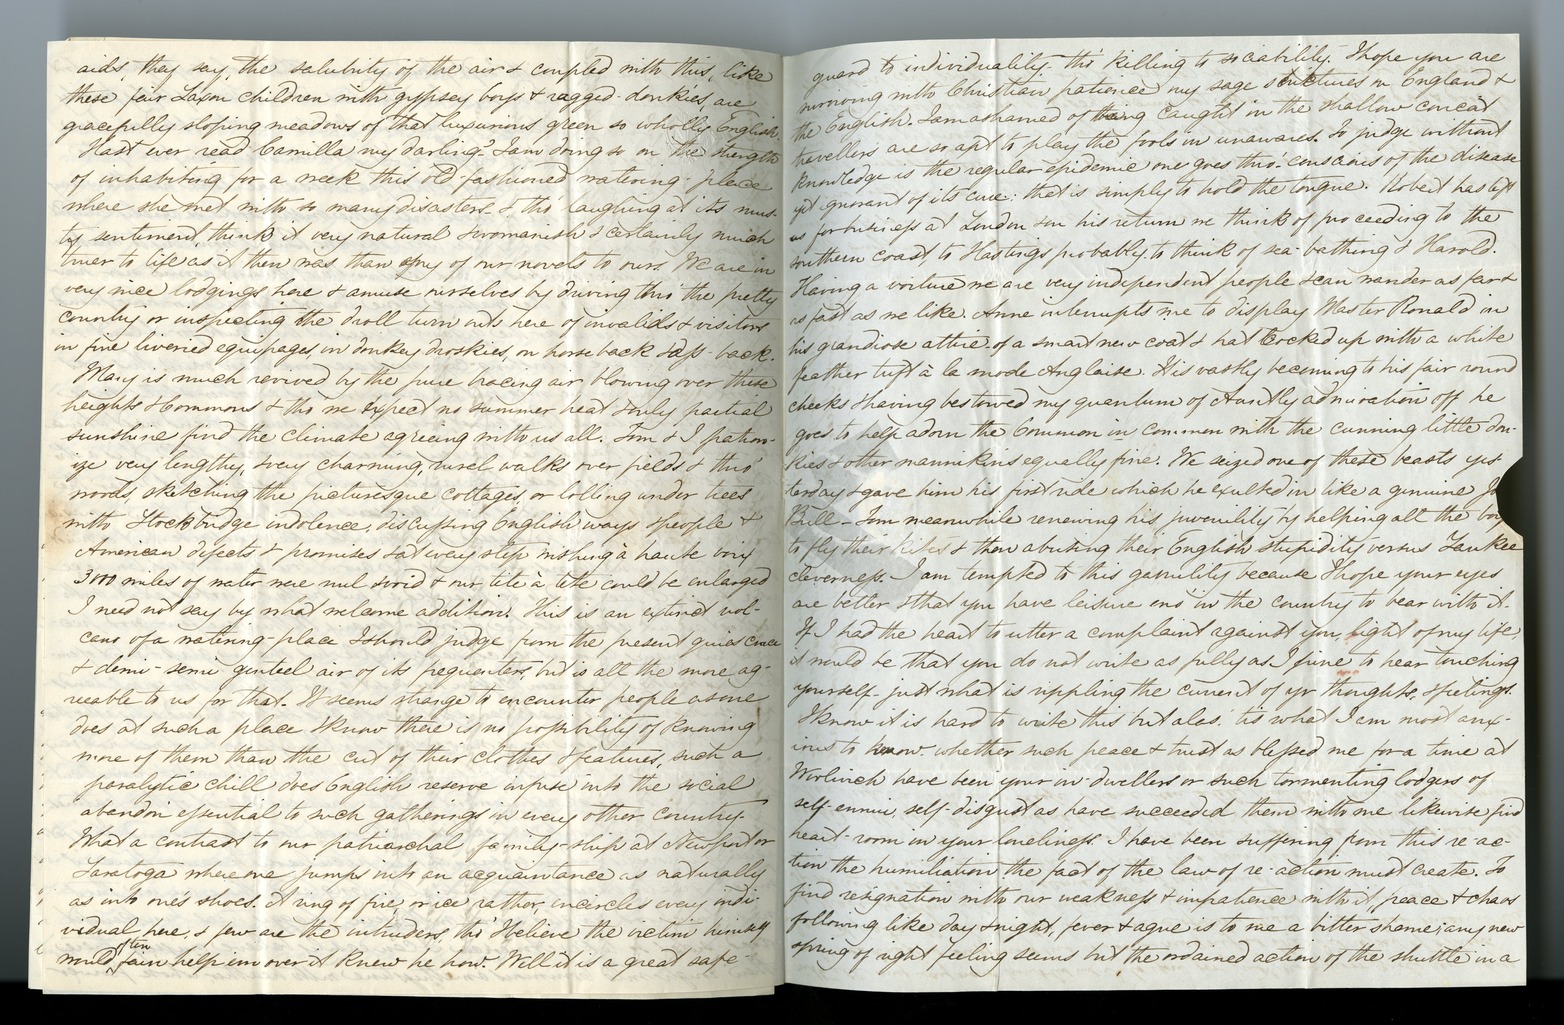 aids, they say, the salubrity of the air & coupled with this, like
these fair Saxon children with gypsey boys & ragged donkies, are
gracefully sloping meadows of that luxurious green so wholly English.
Hast ever read Camilla my darling? I am doing so on the strength
of inhabiting for a week this old-fashioned watering-place
where she met with so many disasters & tho' laughing at its mus-
ty sentiment, think it very natural & womanish & certainly much
truer to life as it then was than any of our novels to ours. We are in
very nice lodgings here & amuse ourselves by driving thro' the pretty
country or inspecting the droll turn outs here of invalids & visitors
in fine liveried equipages, in donkey droskies, on horse back & ass-back.
Mary is much revived by the pure bracing air blowing over these
heights & Commons & tho we expect no summer heat & only partial
sunshine find the climate agreeing with us all. Tom & I patron-
ize very lengthy, & very charming, rural walks over fields & thro'
woods, sketching the picturesque cottages, or lolling under trees
with Stockbridge indolence, discussing English ways & people &
American defects & promises & at every step wishing à haute voix
3000 miles of water were nul & void & our tête à tête could be enlarged
I need not say by what welcome addition. This is an extinct vol-
cano of a watering-place I should judge from the present quiescence
& demi-semi genteel air of its frequenters, but is all the more ag-
reeable to us for that. It seems strange to encounter people as one
does at such a place & know there is no possibility of knowing
more of them than the cut of their clothes & features, such a
paralytic chill does English reserve infuse into the social
abandon essential to such gatherings in every other country.
What a contrast to our patriarchal family-ship at Newport or
Saratoga where one jumps into an acquaintance as naturally
as into one's shoes. A ring of fire or ice rather, encircles every indi-
vidual here, & few are the intruders, tho' I believe the victim himself
would often fain help em over it knew he how. Well it is a great safe-
guard to individuality tho' killing to sociability. I hope you are
surviving with Christian patience my sage strictures on England &
the English. I am ashamed of being caught in the shallow conceit
travellers are so apt to play the fools in unawares. To judge without
knowledge is the regular epidemic one goes thro', conscious of the disease
yet ignorant of its cure: that is simply to hold the tongue. Robert has left
us for business at London & on his return we think of proceeding to the
southern coast, to Hastings probably, to think of sea-bathing & Harold.
Having a voiture we are very independent people & can wander as far &
as fast as we like. Anne interrupts me to display Master Ronald in
his grandiose attire of a smart new coat & hat cocked up with a white
feather tuft à la mode Anglaise. It is vastly becoming to his fair round
cheeks & having bestowed my quantum of Auntly admiration off he
goes to help adorn the Common in common with the cunning little don-
kies & other mannikins equally fine. We seized one of these beasts yes-
terday & gave him his first ride which he exulted in like a genuine Jo
Bull – Tom meanwhile renewing his juvenility by helping all the boys
to fly their kites & then abusing their English stupidity versus Yankee
cleverness. I am tempted to this garrulity because I hope your eyes
are better & that you have leisure eno' in the country to bear with it.
If I had the heart to utter a complaint against you, light of my life,
it would be that you do not write as fully as I pine to hear touching
yourself – just what is rippling the current of yr thoughts & feelings.
I know it is hard to write this but alas, 'tis what I am most anx-
ious to know whether such peace & trust as blessed me for a time at
Woolwich have been your in-dwellers or such tormenting lodgers of
self-ennui, self-disgust as have succeeded them with me likewise find
heart-room in your loneliness. I have been suffering from this re-ac-
tion the humiliation the fact of the law of re-action must create. To
find resignation with our weakness & impatience with it, peace & chaos
following like day & night, fever & ague is to me a bitter shame; any new
spring of right feeling seems but the ordained action of the shuttle in a